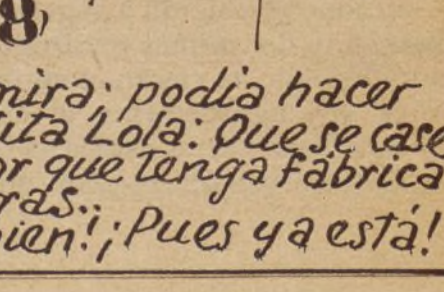 8,
mira; podia hacer
ita Lola: Que se case
or que tenga fábrica
ras..
bien! ¡Pues ya está!